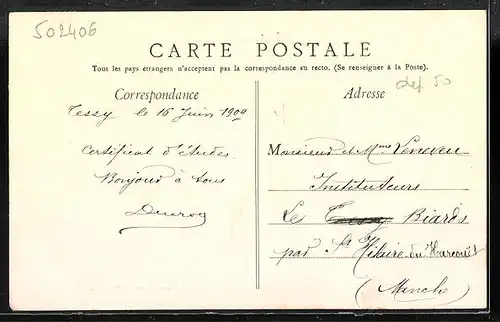 502406
CARTE POSTALE
Tous les pays étrangers n'acceptent pas la correspondance au recto. (Se renseigner à la Poste).
def 50
Correspondance
Adresse
Tessy le 16 Juin 1909
Certificat d'études
Bonjour à tous
Monsieur et Mme
Instituteurs
Le Biards
par St Hilaire du Harcouët
(Manche)